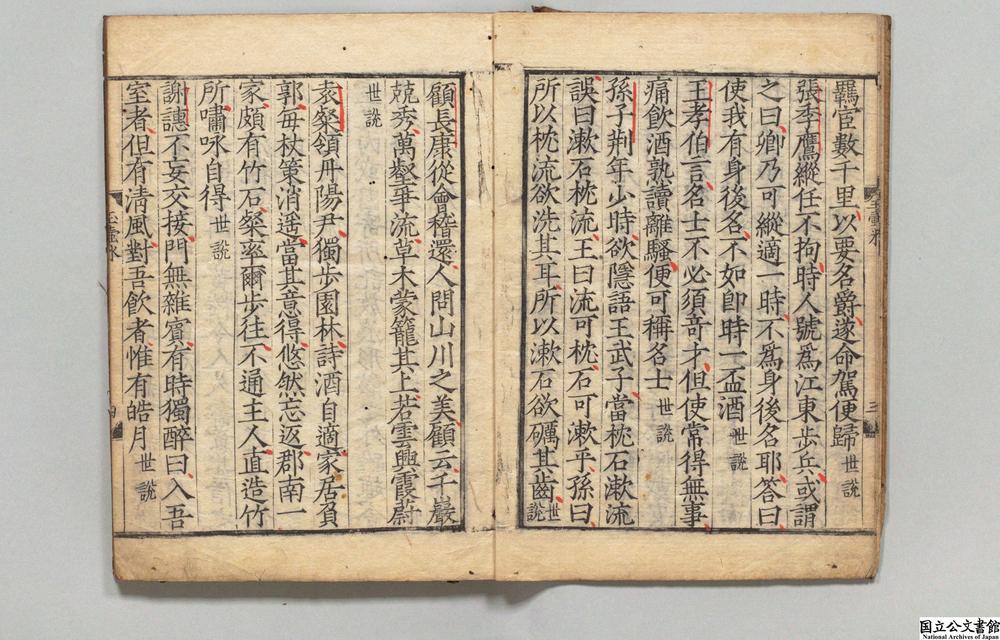 羈宦數千里以要名爵遂命駕便歸世說
張季鷹縱任不拘時人號爲江東步兵或謂
之曰卿乃可縱適一時不爲身後名耶答曰
使我有身後名不如卽時一盃酒世說
王孝伯言名士不必須竒才但使常得無事
痛飲酒熟讀離騷便可稱名士世說
孫子荆年少時欲隱語王武子當枕石漱流
誤曰漱石枕流王曰流可枕石可漱乎孫曰
所以枕流欲洗其耳所以漱石欲礪其齒世說
三
顧長康從會稽還人問山川之美顧云千巖
競秀萬壑爭流草木蒙籠其上若雲興霞蔚
世說
袁粲領丹陽尹獨步園林詩酒自適家居負
郭每杖策消遥當其意得悠然忘返郡南一
家頗有竹石粲率爾步往不通主人直造竹
所嘯咏自得世說
謝譓不妄交接門無雜賓有時獨醉曰入吾
室者但有淸風對吾飲者惟有皓月世說
玉壺氷
四
国立公文書館
National Archives of Japan